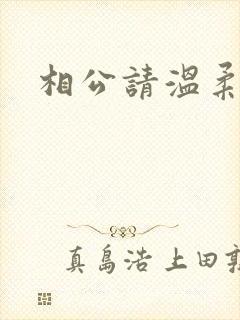 相公請溫柔
真島浩 上田敦